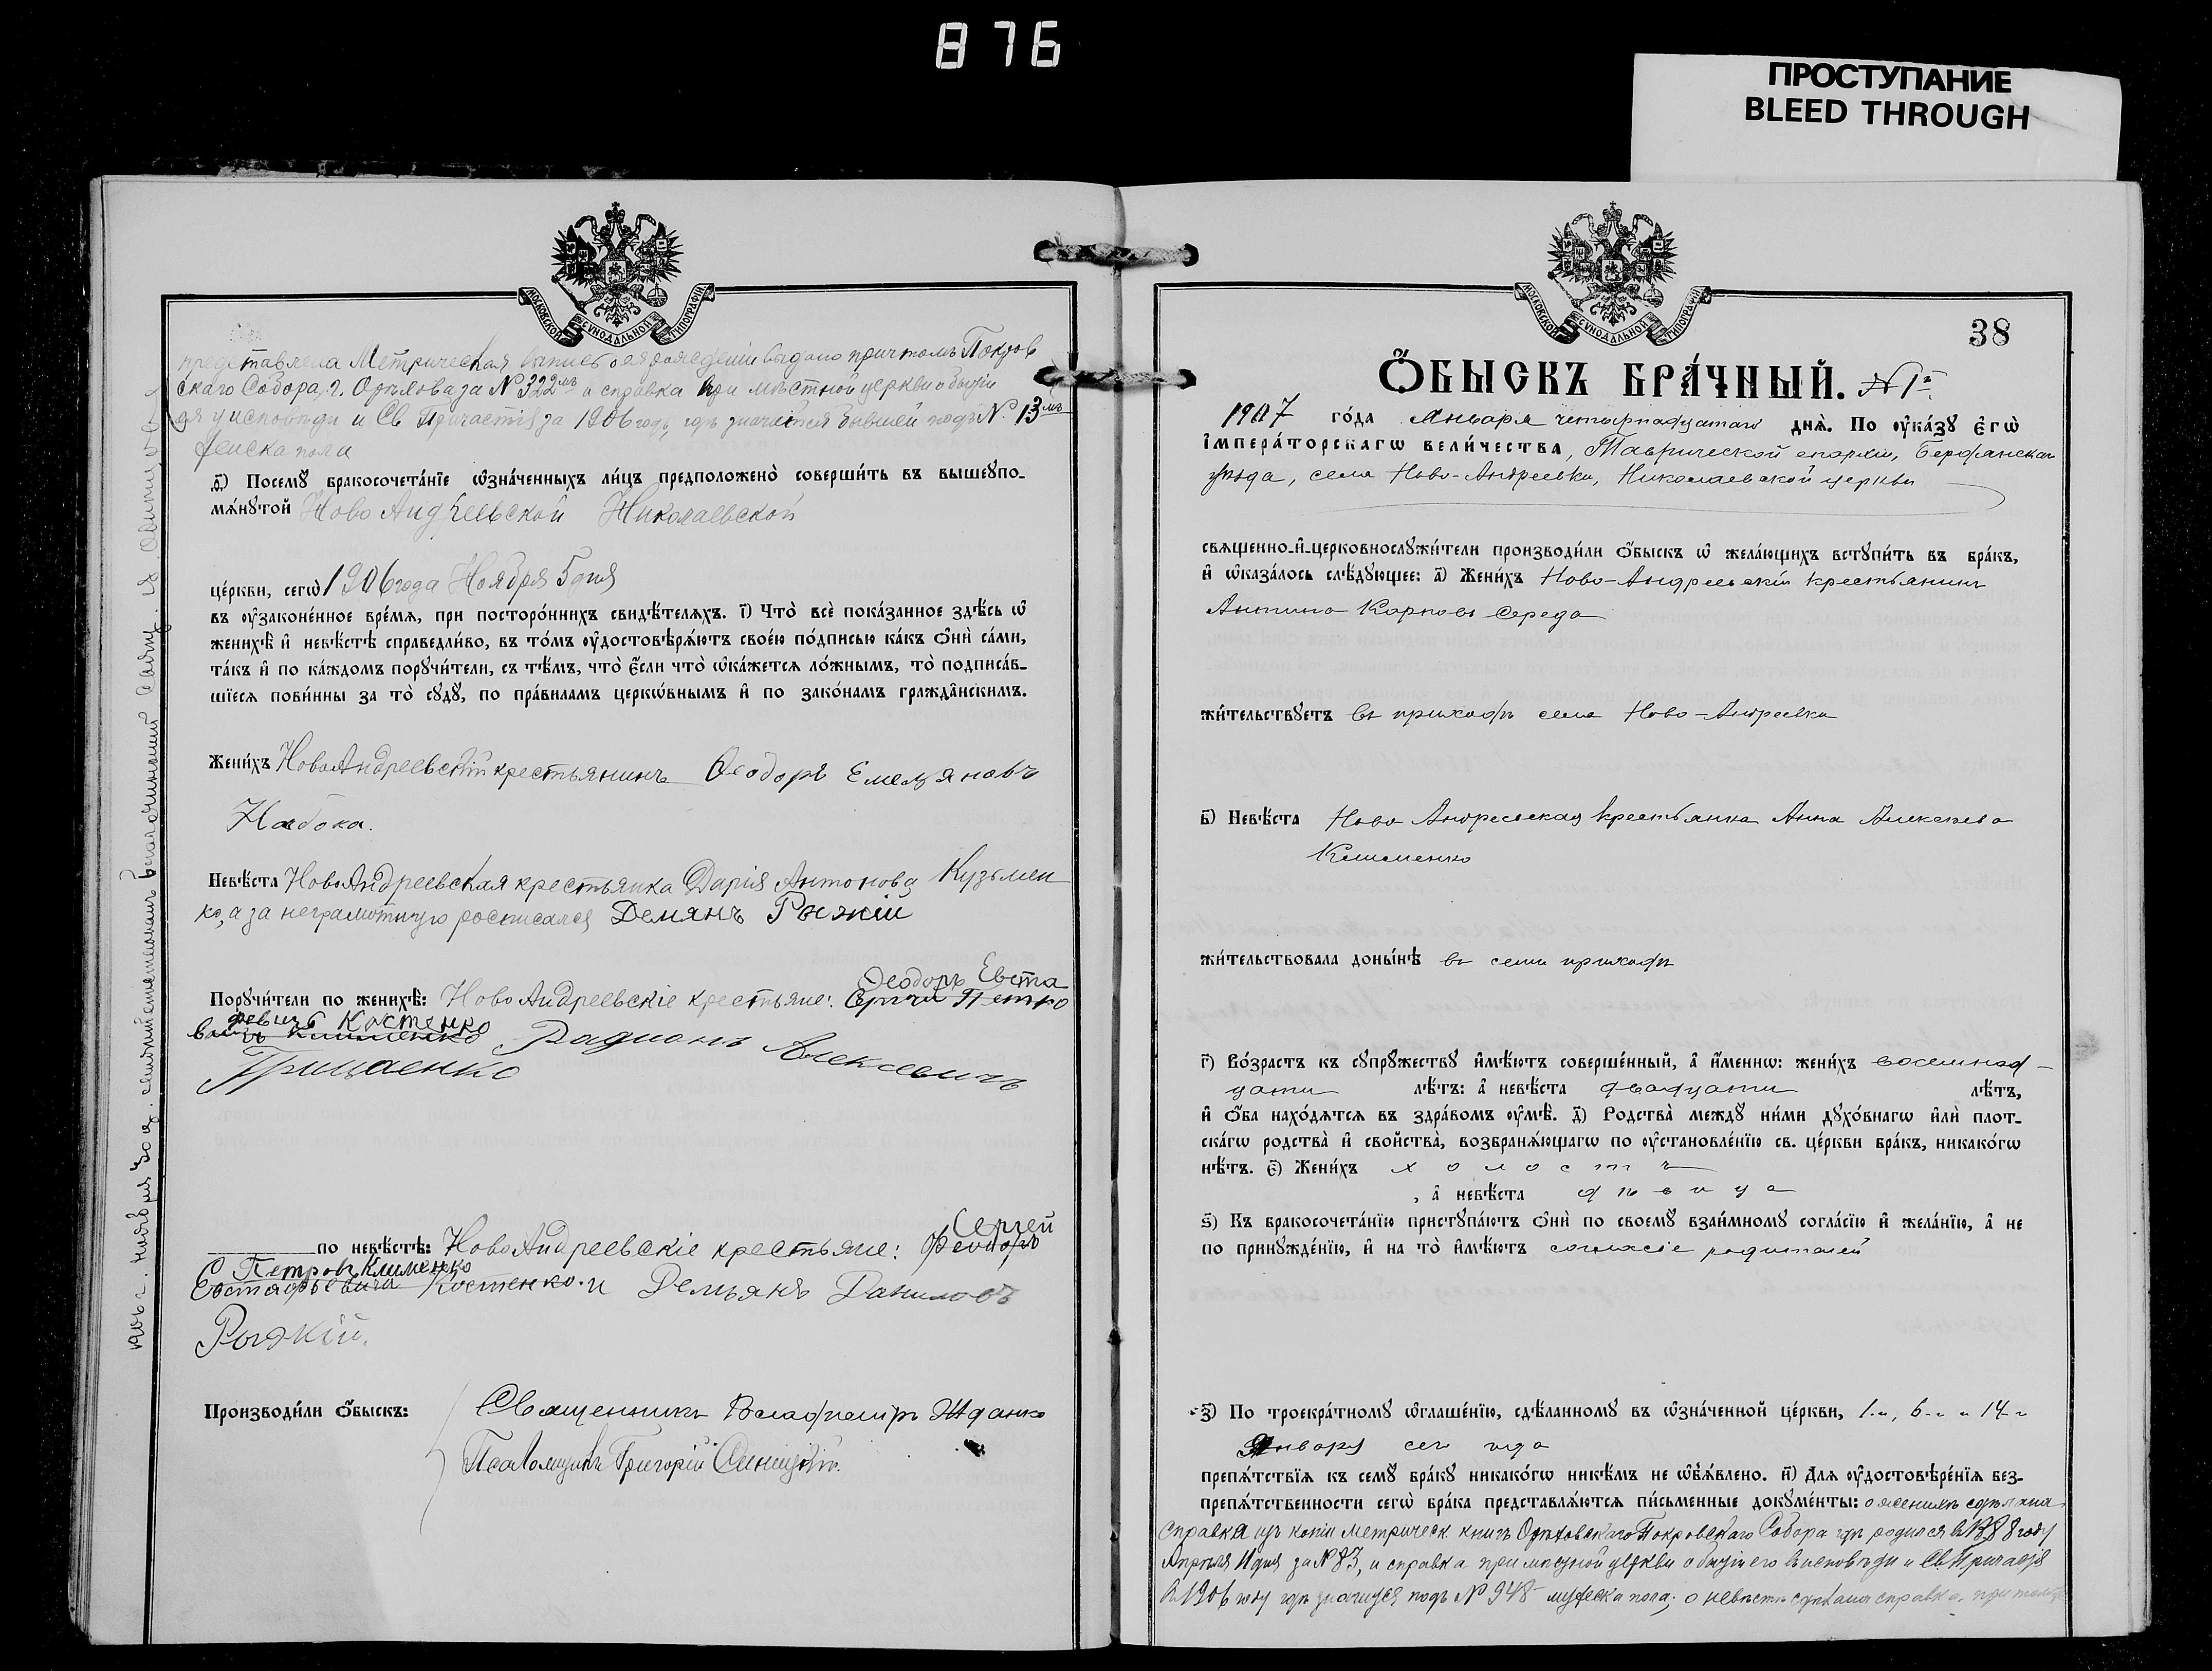 876
ПРОСТУПАНИЕ
BLEED THROUGH
МОСКОВСКОЙ СѴНОДАЛЬНОЙ ТИПОГРАФІИ
представлена Метрическая выпись о ея рожденіи выдано причтомъ Покров
скаго Собора, г. Орѣхова за № 322мъ и справка при мѣстной церкви о бытіи
ея у исповѣди и Св Причастія за 1906 годъ, гдѣ значится бывшей подъ № 13мъ
женска пола
д҃) Посемꙋ бракосочета́нїе ѡ҆зна́ченныхъ ли́цъ предположено̀ соверши́ть въ вышеꙋпо-
мѧ́нꙋтой Ново Андреевской Николаевской
це́ркви, сегѡ̀ 1906 года Ноября 5 дня
въ ᲂу҆законе́нное вре́мѧ, при посторо́ннихъ свидѣ́телѧхъ. і҃) Что̀ всѐ пока́занное здѣ́сь ѡ҆
женихѣ̀ и҆ невѣ́стѣ справедли́во, въ то́мъ ᲂу҆достовѣрѧ́ютъ свое́ю по́дписью ка́къ ѻ҆нѝ са́ми,
та́къ и҆ по ка́ждомъ порꙋчи́тели, съ тѣ́мъ, что̀ є҆́сли что̀ ѡ҆ка́жетсѧ ло́жнымъ, то̀ подписа́в-
шїесѧ пови́нны за то̀ сꙋдꙋ̀, по пра́виламъ церко́внымъ и҆ по зако́намъ гражда́нскимъ.
Жени́хъ НовоАндреевскій крестьянинъ Ѳеодоръ Емеляновъ
Набока.
Невѣ́ста НовоАндреевская крестьянка Дарія Антонова Кузьмен
ко, а за неграмотную росписался Демянъ Рыжій
Ѳеодоръ Евста
Порꙋчи́тели по женихѣ̀: НовоАндреевскіе крестьяне: Сергѣй Петро
фьевичъ Костенко
вичъ Клименко Радионъ Алексевичъ
Грицаенко
Сергей
по невѣ́стѣ: НовоАндреевскіе крестьяне: Феодоръ
Петровъ Клименко
Евстафьевича Костенко. и Демьянъ Даниловъ
Рыжкій.
Производи́ли ѻ҆́быскъ: Священникъ Владимиръ Жданко
Псаломщикъ Григорій Синицкій.
МОСКОВСКОЙ СѴНОДАЛЬНОЙ ТИПОГРАФІИ
38
Ѻ҆́БЫСКЪ БРА́ЧНЫЙ. № 1й
1907 го́да Января четырнадцатаго днѧ̀. По ᲂу҆ка́зꙋ є҆гѡ̀
і҆мпера́торскагѡ вели́чества, Таврической епархіи, Бердянскаго
уѣзда, села Ново-Андреевки, Николаевской церкви
свѧщенно-и҆-церковнослꙋжи́тели производи́ли ѻ҆́быскъ ѡ҆ жела́ющихъ встꙋпи́ть въ бра́къ,
и҆ ѡ҆каза́лось слѣ́дꙋющее: а҃) Жени́хъ Ново-Андреевскій крестьянинъ
Антипа Карповъ Середа
жи́тельствꙋетъ въ приходѣ села Ново-Андреевки
в҃) Невѣ́ста Ново Андреевская крестьянка Анна Алексѣева
Клименко
жи́тельствовала доны́нѣ въ семъ приходѣ
г҃) Во́зрастъ къ сꙋпрꙋ́жествꙋ и҆мѣ́ютъ соверше́нный, а҆ и҆́меннѡ: жени́хъ восемнад-
цати лѣ́тъ: а҆ невѣ́ста двадцати лѣ́тъ,
и҆ ѻ҆́ба нахо́дѧтсѧ въ здра́вомъ ᲂу҆мѣ̀. д҃) Родства̀ междꙋ̀ ни́ми дꙋхо́внагѡ и҆лѝ плот-
ска́гѡ родства̀ и҆ свойства̀, возбранѧ́ющагѡ по ᲂу҆становле́нїю св. це́ркви бра́къ, никако́гѡ
нѣ́тъ. є҃) Жени́хъ холостъ
, а҆ невѣ́ста дѣвица
ѕ҃) Къ бракосочета́нїю пристꙋпа́ютъ ѻ҆нѝ по своемꙋ̀ взаи́мномꙋ согла́сїю и҆ жела́нїю, а҆ не
по принꙋжде́нїю, и҆ на то̀ и҆мѣ́ютъ согласіе родителей
з҃) По троекра́тномꙋ ѡ҆глаше́нїю, сдѣ́ланномꙋ въ ѡ҆зна́ченной це́ркви, 1-го, 6-го и 14-го
Января сего года
препѧ́тствїѧ къ семꙋ̀ бра́кꙋ никако́гѡ никѣ́мъ не ѡ҆б̾ѧ́влено. и҃) Длѧ ᲂу҆достовѣре́нїѧ без-
препѧ́тственности сегѡ̀ бра́ка представлѧ́ютсѧ пи́сьменные докꙋме́нты: о женихѣ сдѣлана
справка изъ копіи метрическ книгъ Орѣховскаго Покровскаго Собора гдѣ родился въ 1888 году
Апрѣля 11 дня за № 83, и справка при мѣстной церкви о бытіи его въ исповѣди и Св. Причастія
въ 1906 году гдѣ значится подъ № 948 мужеска пола; о невѣстѣ сдѣлана справка при